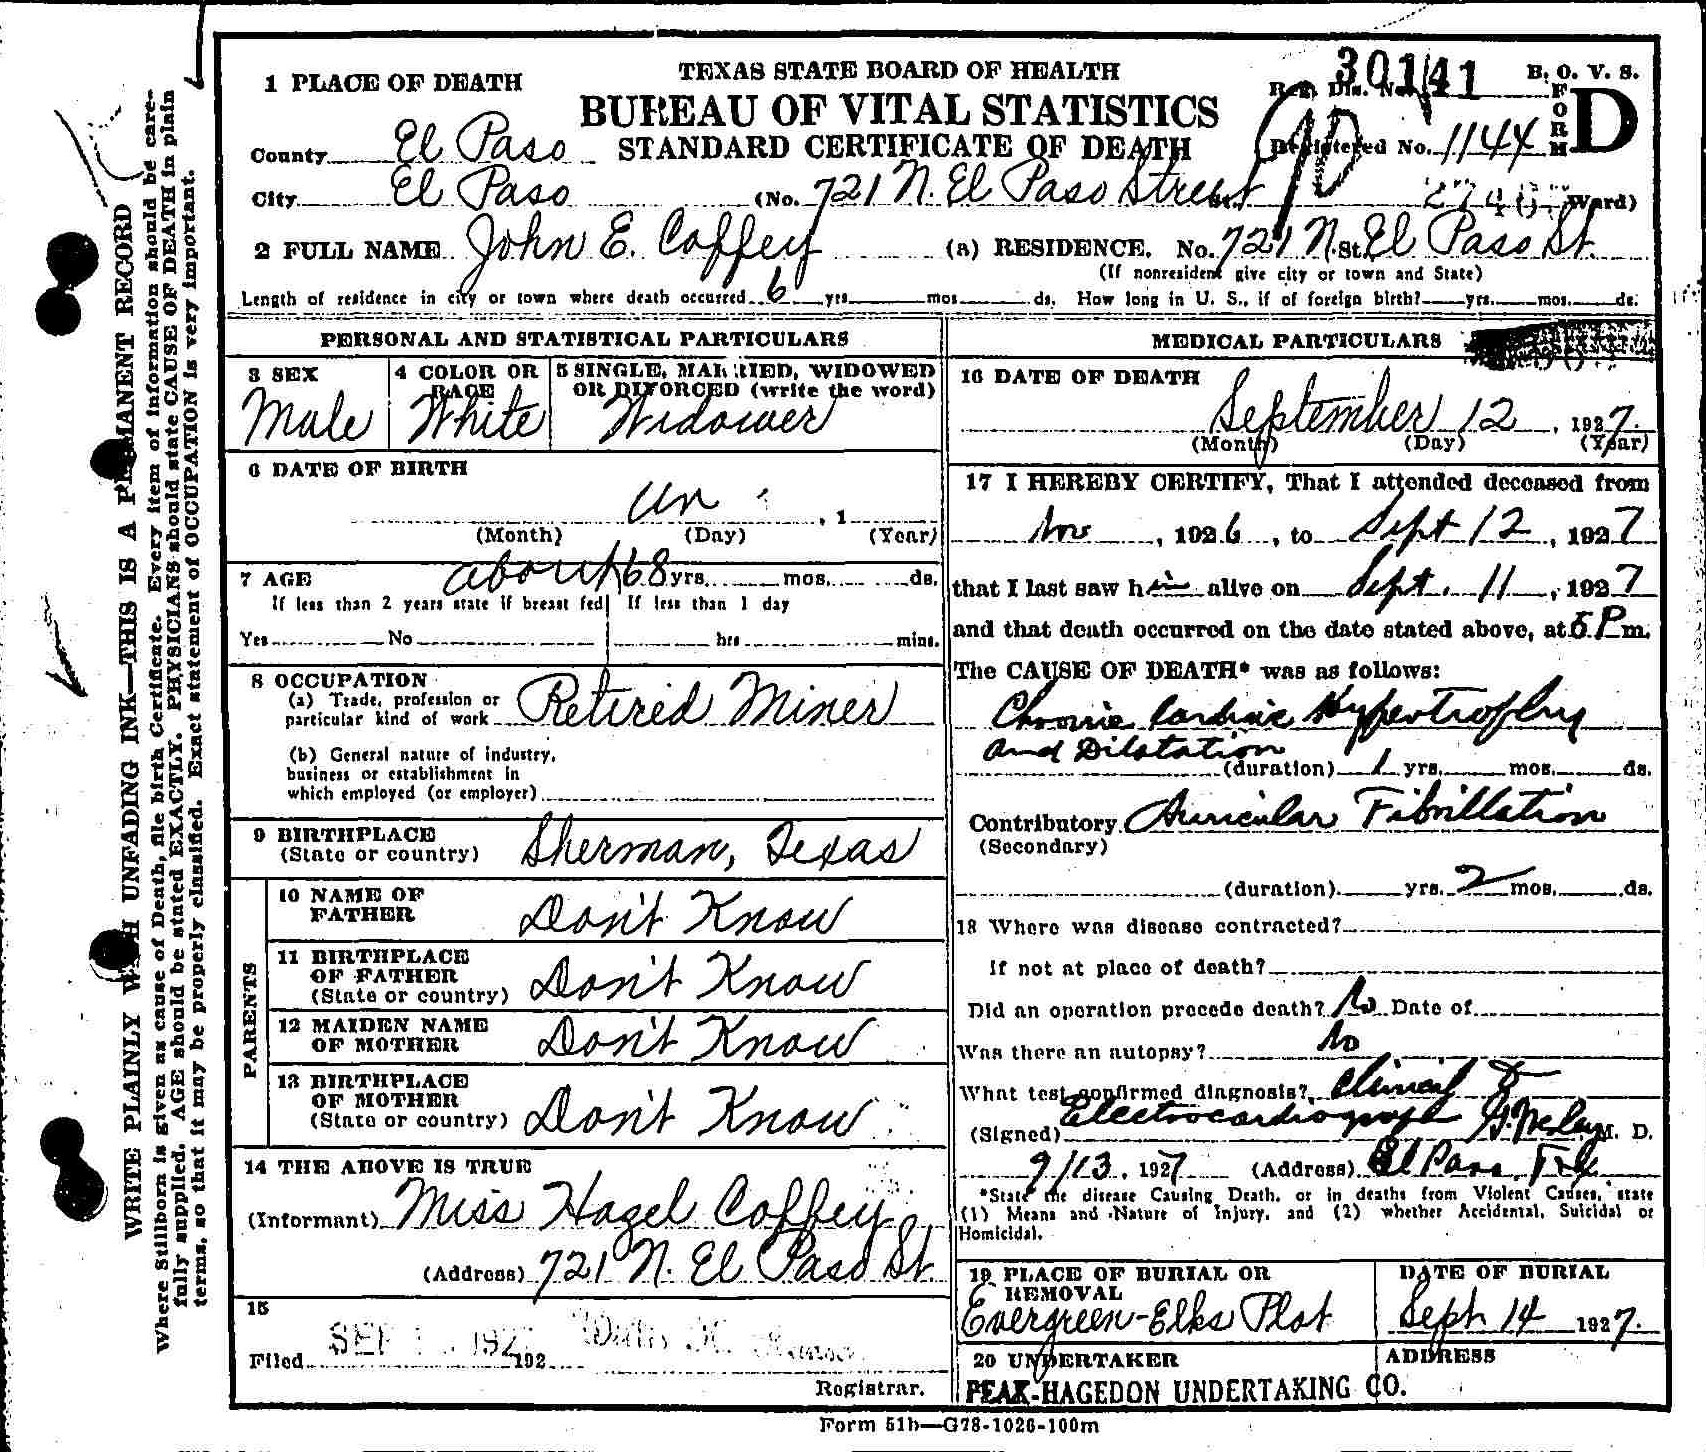 WRITE PLAINLY WITH UNFADING INK—THIS IS A PERMANENT RECORD
Where Stillborn is given as cause of Death, file birth Certificate. Every item of information should be care-
fully supplied. AGE should be stated EXACTLY. PHYSICIANS should state CAUSE OF DEATH in plain
terms, so that it may be properly classified. Exact statement of OCCUPATION is very important.
TEXAS STATE BOARD OF HEALTH
BUREAU OF VITAL STATISTICS
STANDARD CERTIFICATE OF DEATH
Reg. Dis. No. 30141
B. O. V. S.
FORM D
Registered No. 1144
1 PLACE OF DEATH
County El Paso
City El Paso (No. 721 N. El Paso Street St. Ward)
2 FULL NAME John E. Coffey (a) RESIDENCE. No. 721 N. St. El Paso St.
(If nonresident give city or town and State)
Length of residence in city or town where death occurred 6 yrs. mos. ds. How long in U. S., if of foreign birth? yrs. mos. ds.
PERSONAL AND STATISTICAL PARTICULARS
3 SEX
Male
4 COLOR OR RACE
White
5 SINGLE, MARRIED, WIDOWED
OR DIVORCED (write the word)
Widower
6 DATE OF BIRTH
Un , 1
(Month) (Day) (Year)
7 AGE about 68 yrs. mos. ds.
If less than 2 years state if breast fed If less than 1 day
Yes No hrs mins.
8 OCCUPATION
(a) Trade, profession or
particular kind of work Retired Miner
(b) General nature of industry,
business or establishment in
which employed (or employer)
9 BIRTHPLACE
(State or country) Sherman, Texas
PARENTS
10 NAME OF
FATHER Don't Know
11 BIRTHPLACE
OF FATHER
(State or country) Don't Know
12 MAIDEN NAME
OF MOTHER Don't Know
13 BIRTHPLACE
OF MOTHER
(State or country) Don't Know
14 THE ABOVE IS TRUE
(Informant) Miss Hazel Coffey
(Address) 721 N. El Paso St.
15
Filed SEP 192
Registrar.
MEDICAL PARTICULARS
16 DATE OF DEATH
September 12, 1927.
(Month) (Day) (Year)
17 I HEREBY CERTIFY, That I attended deceased from
Nov, 1926, to Sept 12, 1927
that I last saw him alive on Sept. 11, 1927
and that death occurred on the date stated above, at 5 P m.
The CAUSE OF DEATH* was as follows:
Chronic Cardiac Hypertrophy
and Dilatation
(duration) 1 yrs. mos. ds.
Contributory Auricular Fibrillation
(Secondary)
(duration) yrs. 2 mos. ds.
18 Where was disease contracted?
If not at place of death?
Did an operation precede death? No Date of
Was there an autopsy? No
What test confirmed diagnosis? Clinical &
Electrocardiograph
(Signed) M. D.
9/13, 1927 (Address) El Paso, Tex
*State the disease Causing Death, or in deaths from Violent Causes, state
(1) Means and Nature of Injury, and (2) whether Accidental, Suicidal or
Homicidal.
19 PLACE OF BURIAL OR
REMOVAL
Evergreen-Elks Plot
DATE OF BURIAL
Sept 14 1927.
20 UNDERTAKER
PEAK-HAGEDON UNDERTAKING CO.
ADDRESS
Form 51b—G78-1026-100m